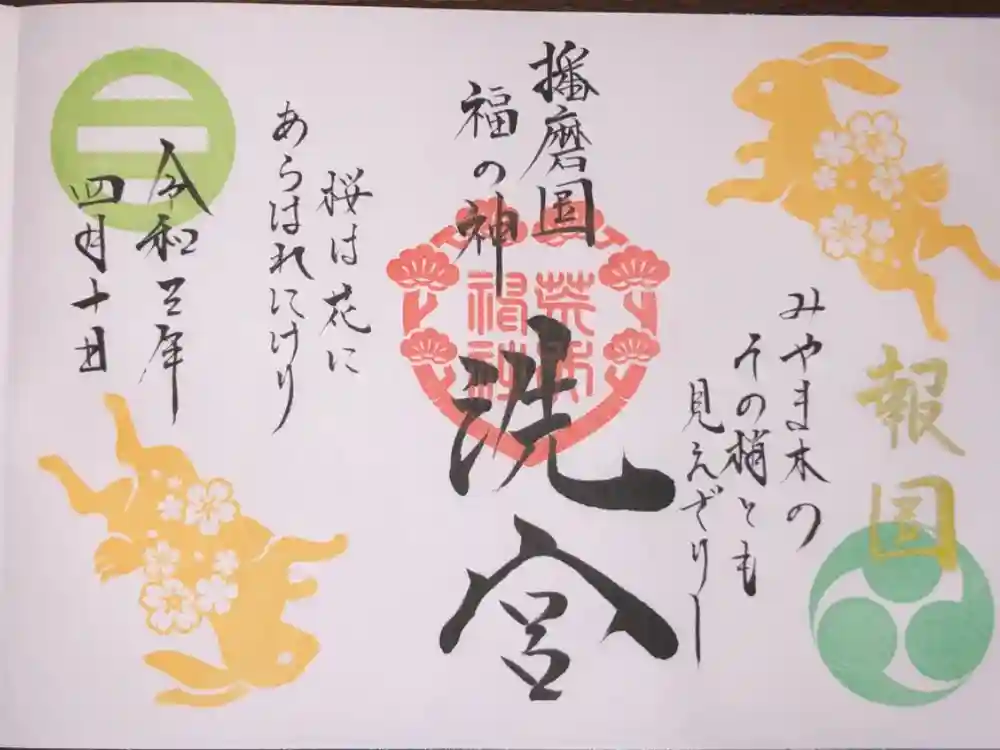 報国
みやま木の
その梢とも
見えざりし
播磨国
福の神
洗宮
桜は花に
あらはれにけり
令和三年
四月十日